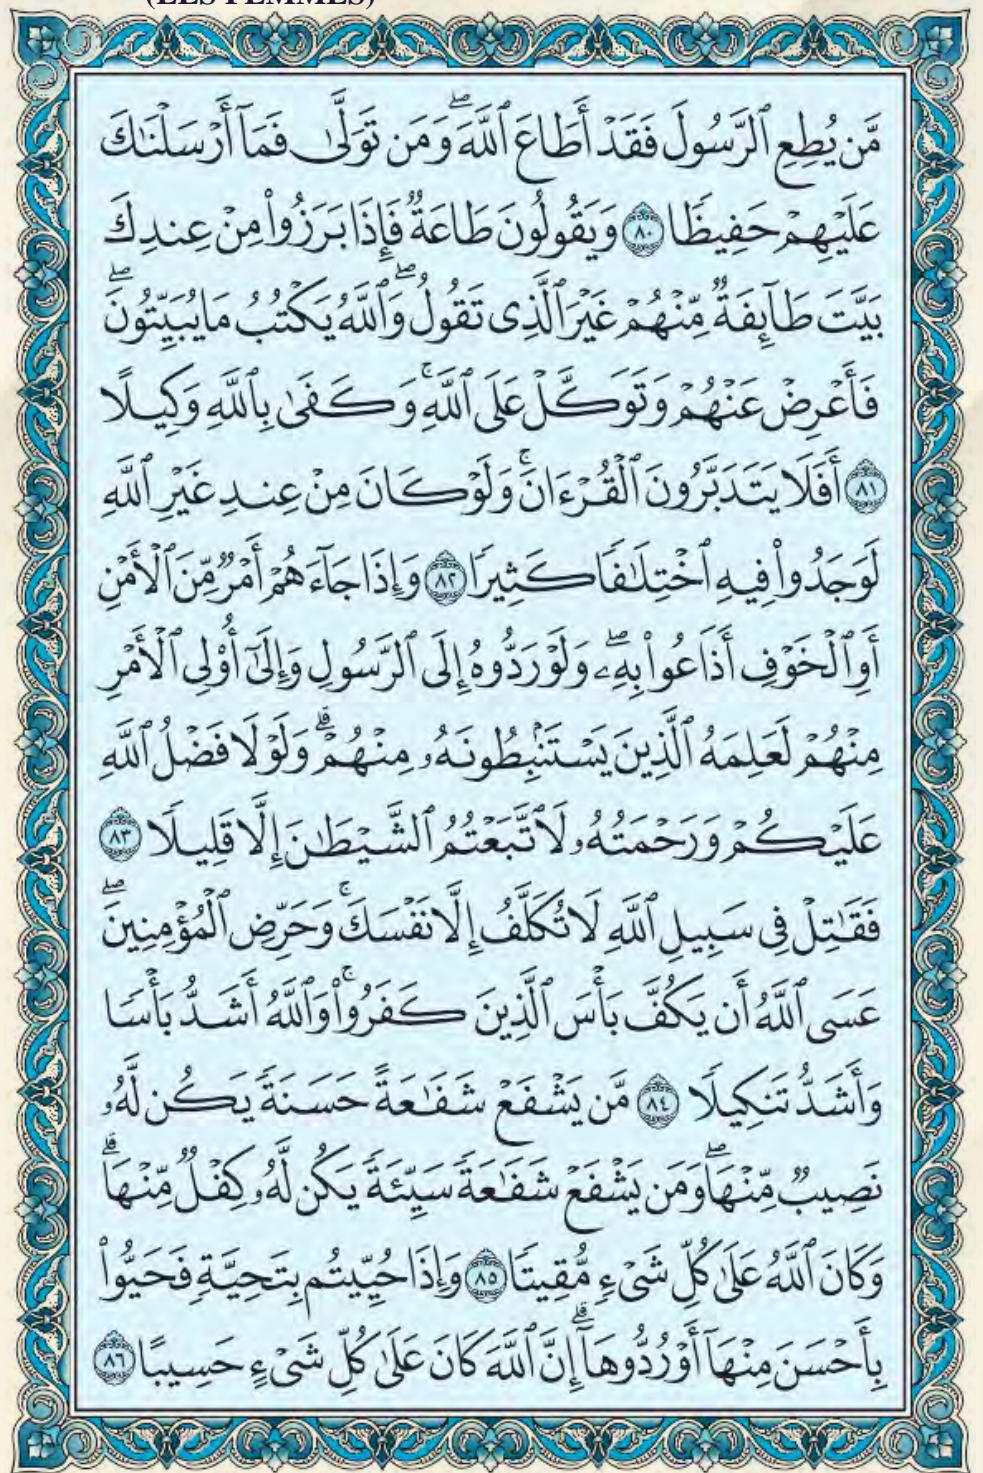 (LES FEMMES)
مَّن يُطِعِ ٱلرَّسُولَ فَقَدْ أَطَاعَ ٱللَّهَۖ وَمَن تَوَلَّىٰ فَمَآ أَرْسَلْنَٰكَ
عَلَيْهِمْ حَفِيظًا ٨٠ وَيَقُولُونَ طَاعَةٌ فَإِذَا بَرَزُوا۟ مِنْ عِندِكَ
بَيَّتَ طَآئِفَةٌ مِّنْهُمْ غَيْرَ ٱلَّذِى تَقُولُۖ وَٱللَّهُ يَكْتُبُ مَا يُبَيِّتُونَۖ
فَأَعْرِضْ عَنْهُمْ وَتَوَكَّلْ عَلَى ٱللَّهِۚ وَكَفَىٰ بِٱللَّهِ وَكِيلًا
٨١ أَفَلَا يَتَدَبَّرُونَ ٱلْقُرْءَانَۚ وَلَوْ كَانَ مِنْ عِندِ غَيْرِ ٱللَّهِ
لَوَجَدُوا۟ فِيهِ ٱخْتِلَٰفًا كَثِيرًا ٨٢ وَإِذَا جَآءَهُمْ أَمْرٌ مِّنَ ٱلْأَمْنِ
أَوِ ٱلْخَوْفِ أَذَاعُوا۟ بِهِۦۖ وَلَوْ رَدُّوهُ إِلَى ٱلرَّسُولِ وَإِلَىٰٓ أُو۟لِى ٱلْأَمْرِ
مِنْهُمْ لَعَلِمَهُ ٱلَّذِينَ يَسْتَنۢبِطُونَهُۥ مِنْهُمْۗ وَلَوْلَا فَضْلُ ٱللَّهِ
عَلَيْكُمْ وَرَحْمَتُهُۥ لَٱتَّبَعْتُمُ ٱلشَّيْطَٰنَ إِلَّا قَلِيلًا ٨٣
فَقَٰتِلْ فِى سَبِيلِ ٱللَّهِ لَا تُكَلَّفُ إِلَّا نَفْسَكَۚ وَحَرِّضِ ٱلْمُؤْمِنِينَۖ
عَسَى ٱللَّهُ أَن يَكُفَّ بَأْسَ ٱلَّذِينَ كَفَرُوا۟ۚ وَٱللَّهُ أَشَدُّ بَأْسًا
وَأَشَدُّ تَنكِيلًا ٨٤ مَّن يَشْفَعْ شَفَٰعَةً حَسَنَةً يَكُن لَّهُۥ
نَصِيبٌ مِّنْهَاۖ وَمَن يَشْفَعْ شَفَٰعَةً سَيِّئَةً يَكُن لَّهُۥ كِفْلٌ مِّنْهَاۗ
وَكَانَ ٱللَّهُ عَلَىٰ كُلِّ شَىْءٍ مُّقِيتًا ٨٥ وَإِذَا حُيِّيتُم بِتَحِيَّةٍ فَحَيُّوا۟
بِأَحْسَنَ مِنْهَآ أَوْ رُدُّوهَآۗ إِنَّ ٱللَّهَ كَانَ عَلَىٰ كُلِّ شَىْءٍ حَسِيبًا ٨٦